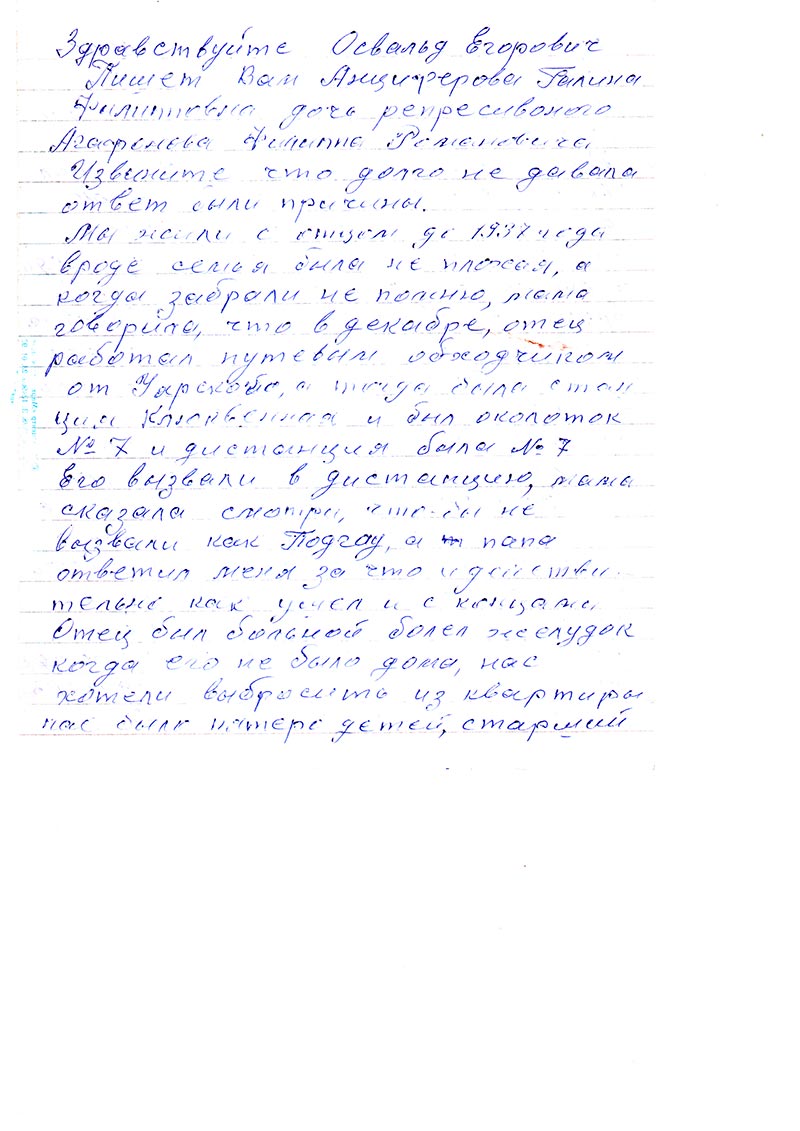 Здравствуйте Освальд Егорович
Пишет Вам Анциферова Галина
Филипповна дочь репресивоного
Агафонова Филиппа Романовича
Извените что долго не давала
ответ были причины.
Мы жили с отцом до 1937 года
вроде семья была не плохая, а
когда забрали не помню, мама
говорила, что в декабре, отец
работал путевым обходчиком
от Уярского, а тогда была стан
ция Клюквенная и был околоток
№ 7 и дистанция была № 7
Его вызвали в дистанцию, мама
сказала смотри, что бы не
вызвали как Подгау, а папа
ответил меня за что и действи
тельно как ушел и с концами
Отец был больной болел желудок
когда его не было дома, нас
хотели выбросить из квартиры
нас было пятеро детей, старший